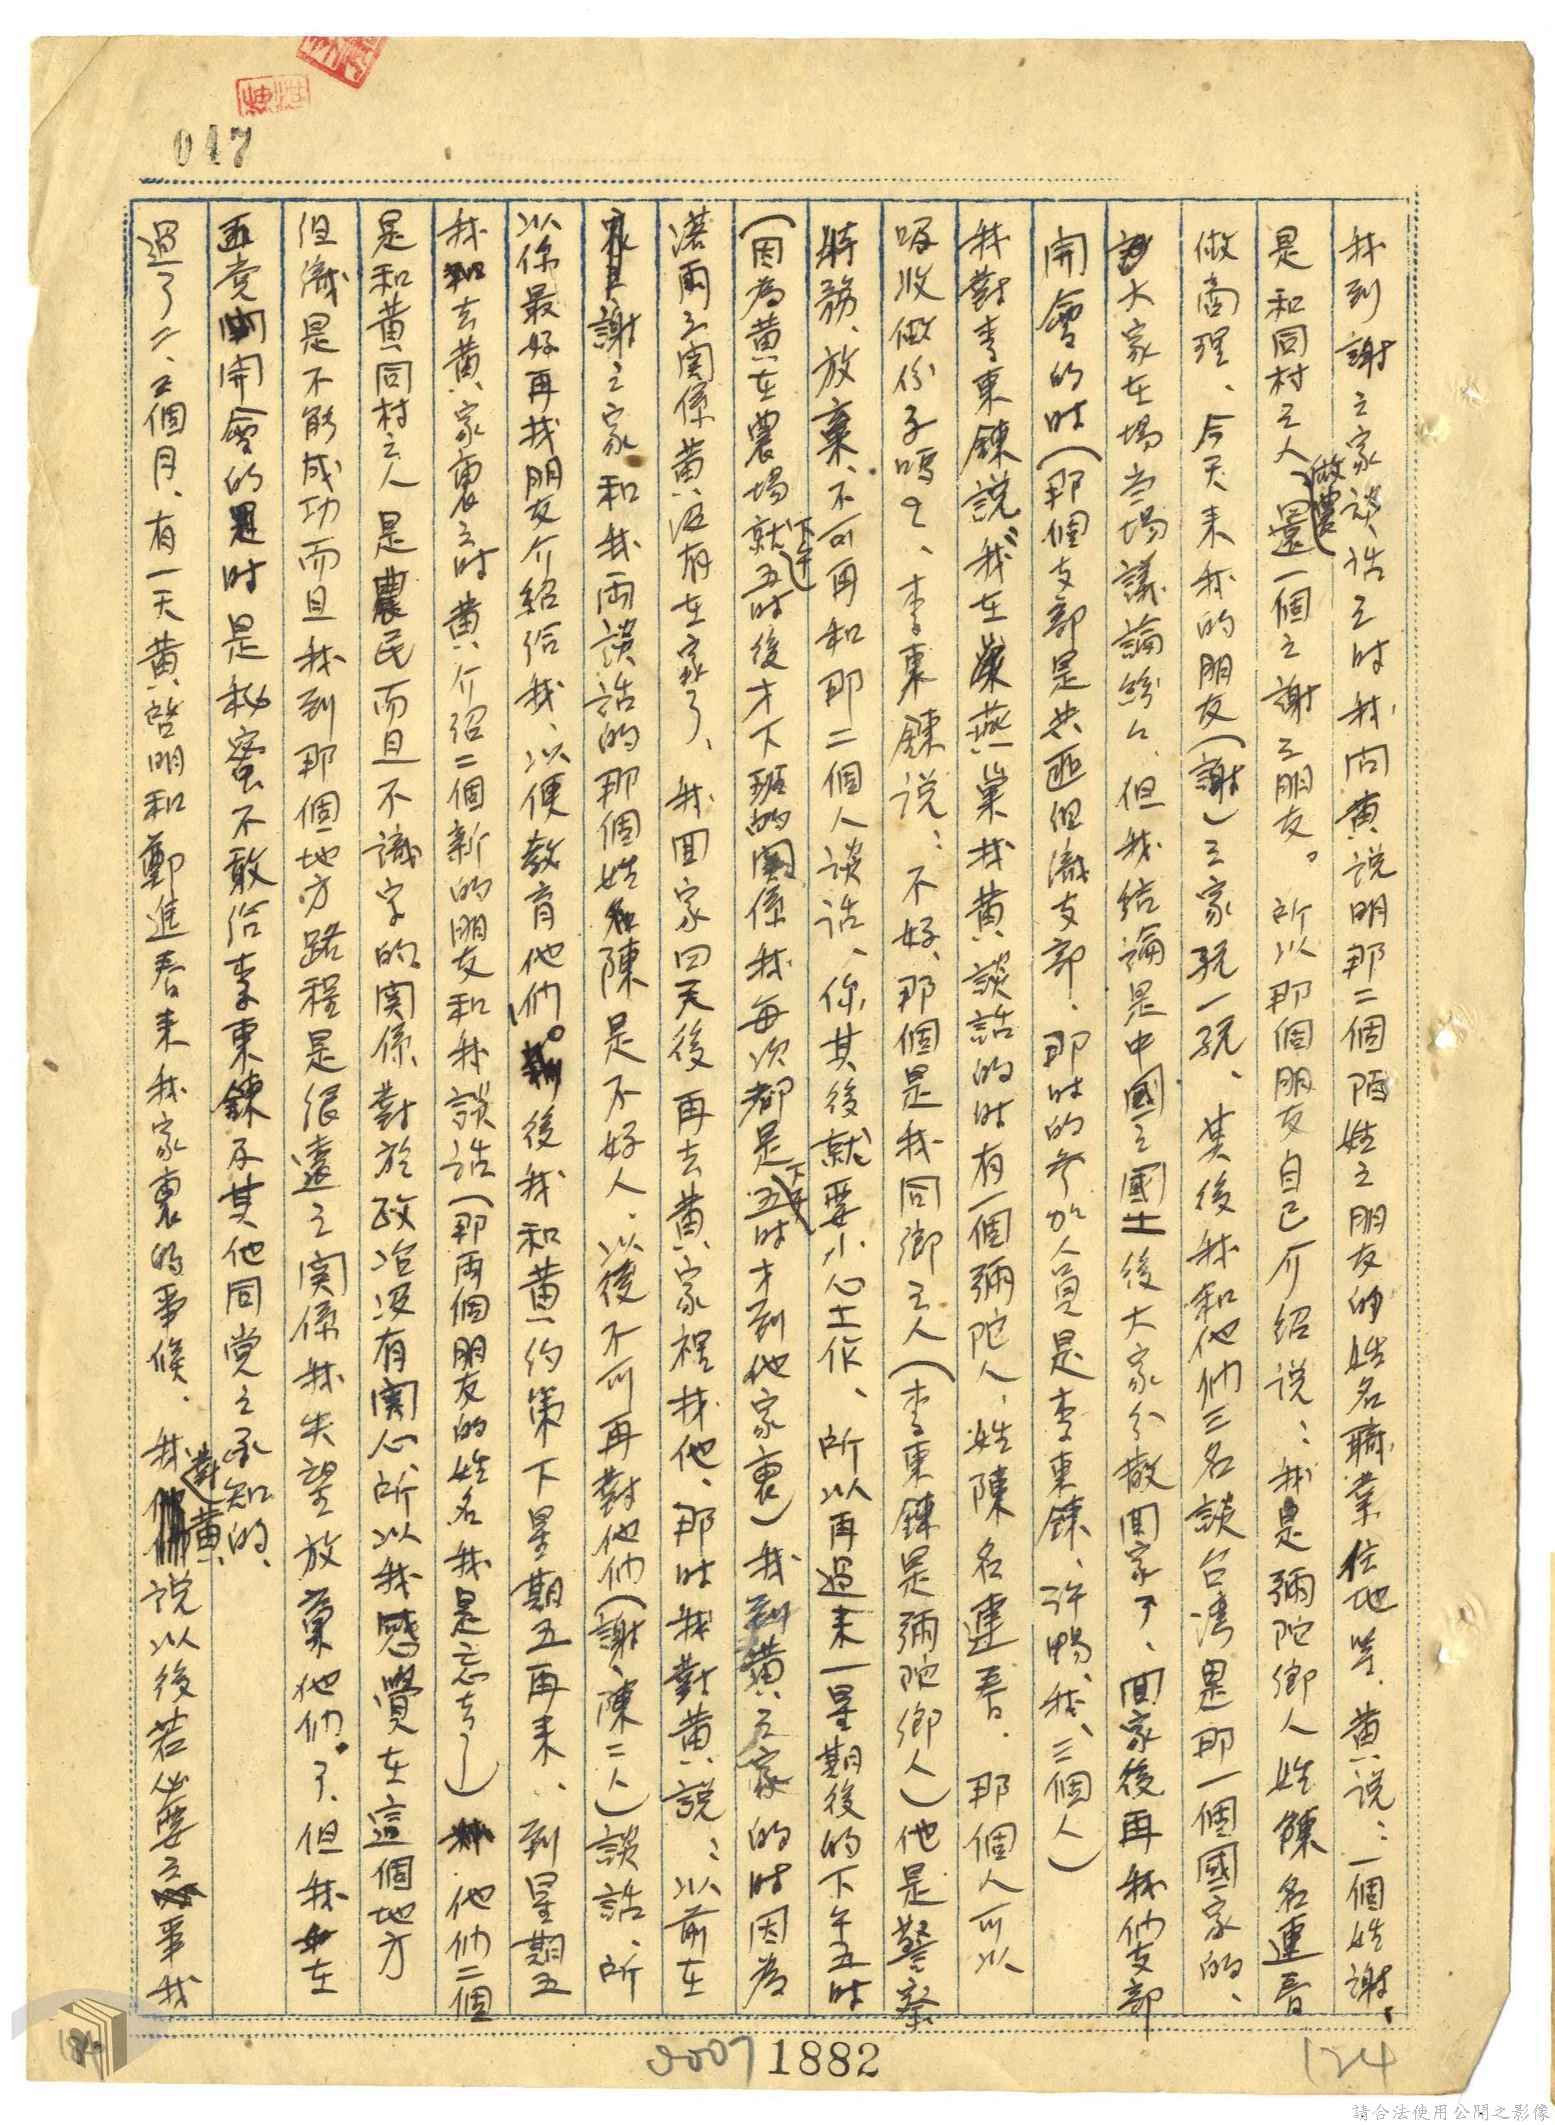 047
我到謝之家談話之時我問黃說明那二個陌姓之朋友的姓名職業住地等、黃說：一個姓謝、
是和同村之人做農還一個之謝之朋友。所以那個朋友自己介紹說：我是彌陀鄉人姓陳名連春
做商理、今天來我的朋友(謝)之家玩一玩、其後我和他們三名談台灣是那一個國家的、
大家在場当場議論紛々、但我結論是中國之國土後大家分散回家了、回家後再我們支部
開會的时(那個支部是共匪但識支部、那时的參加人員是李東鍊、許暢、我、三個人)
我對李東鍊說、我在燕巢找黃談話的时有一個彌陀人、姓陳名連春、那個人可以
吸收做份子嗎？、李東鍊说：不好、那個是我同鄉之人(李東鍊是彌陀鄉人)他是警察
特務、放棄、不可再和那二個人談话、你其後就要小心工作、所以再過來一星期後的下午五时
(因為黃在農場就下午五时後才下班的関係我每次都是下午五时才到他家裏)我到黃之家的时因為
落雨之関係黃沒有在家了、我回家四天後再去黃家裡找他、那时我對黃說：以前在
謝之家和我両談話的那個姓陳是不好人、以後不可再對他們(謝、陳二人)談話、所
以你最好再找朋友介紹给我、以便教育他們。後我和黃約第下星期五再来、到星期五
我去黃家裏之时黃介绍二個新的朋友和我談话(那両個朋友的姓名我是忘去了)他們二個
是和黃同村之人是農民而且不識字的関係對於政治沒有関心所以我感覺在這個地方
但識是不能成功而且我到那個地方路程是很遠之関係我失望放棄他們。了、但我在
匪党開會的时是秘密不敢给李東鍊及其他同党之承知的、
過了二、三個月、有一天黃啓明和鄭進春来我家裏的事候、我對黃說以後若必要之事我
0007 1882
124
請合法使用公開之影像